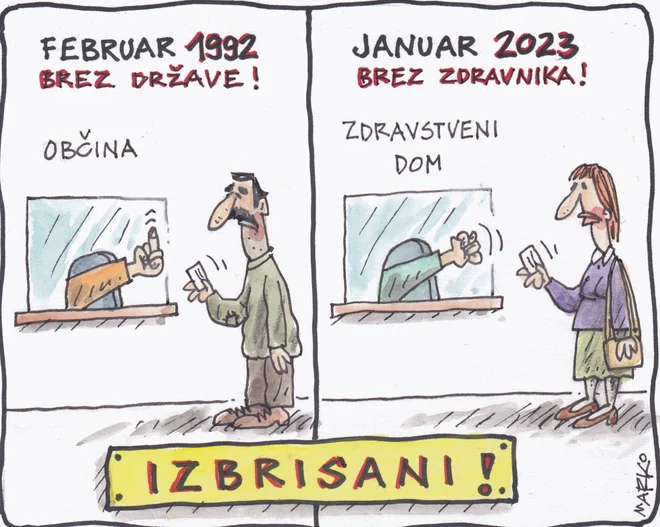 FEBRUAR 1992
BREZ DRŽAVE!
OBČINA
JANUAR 2023
BREZ ZDRAVNIKA!
ZDRAVSTVENI
DOM
IZBRISANI!
MARKO